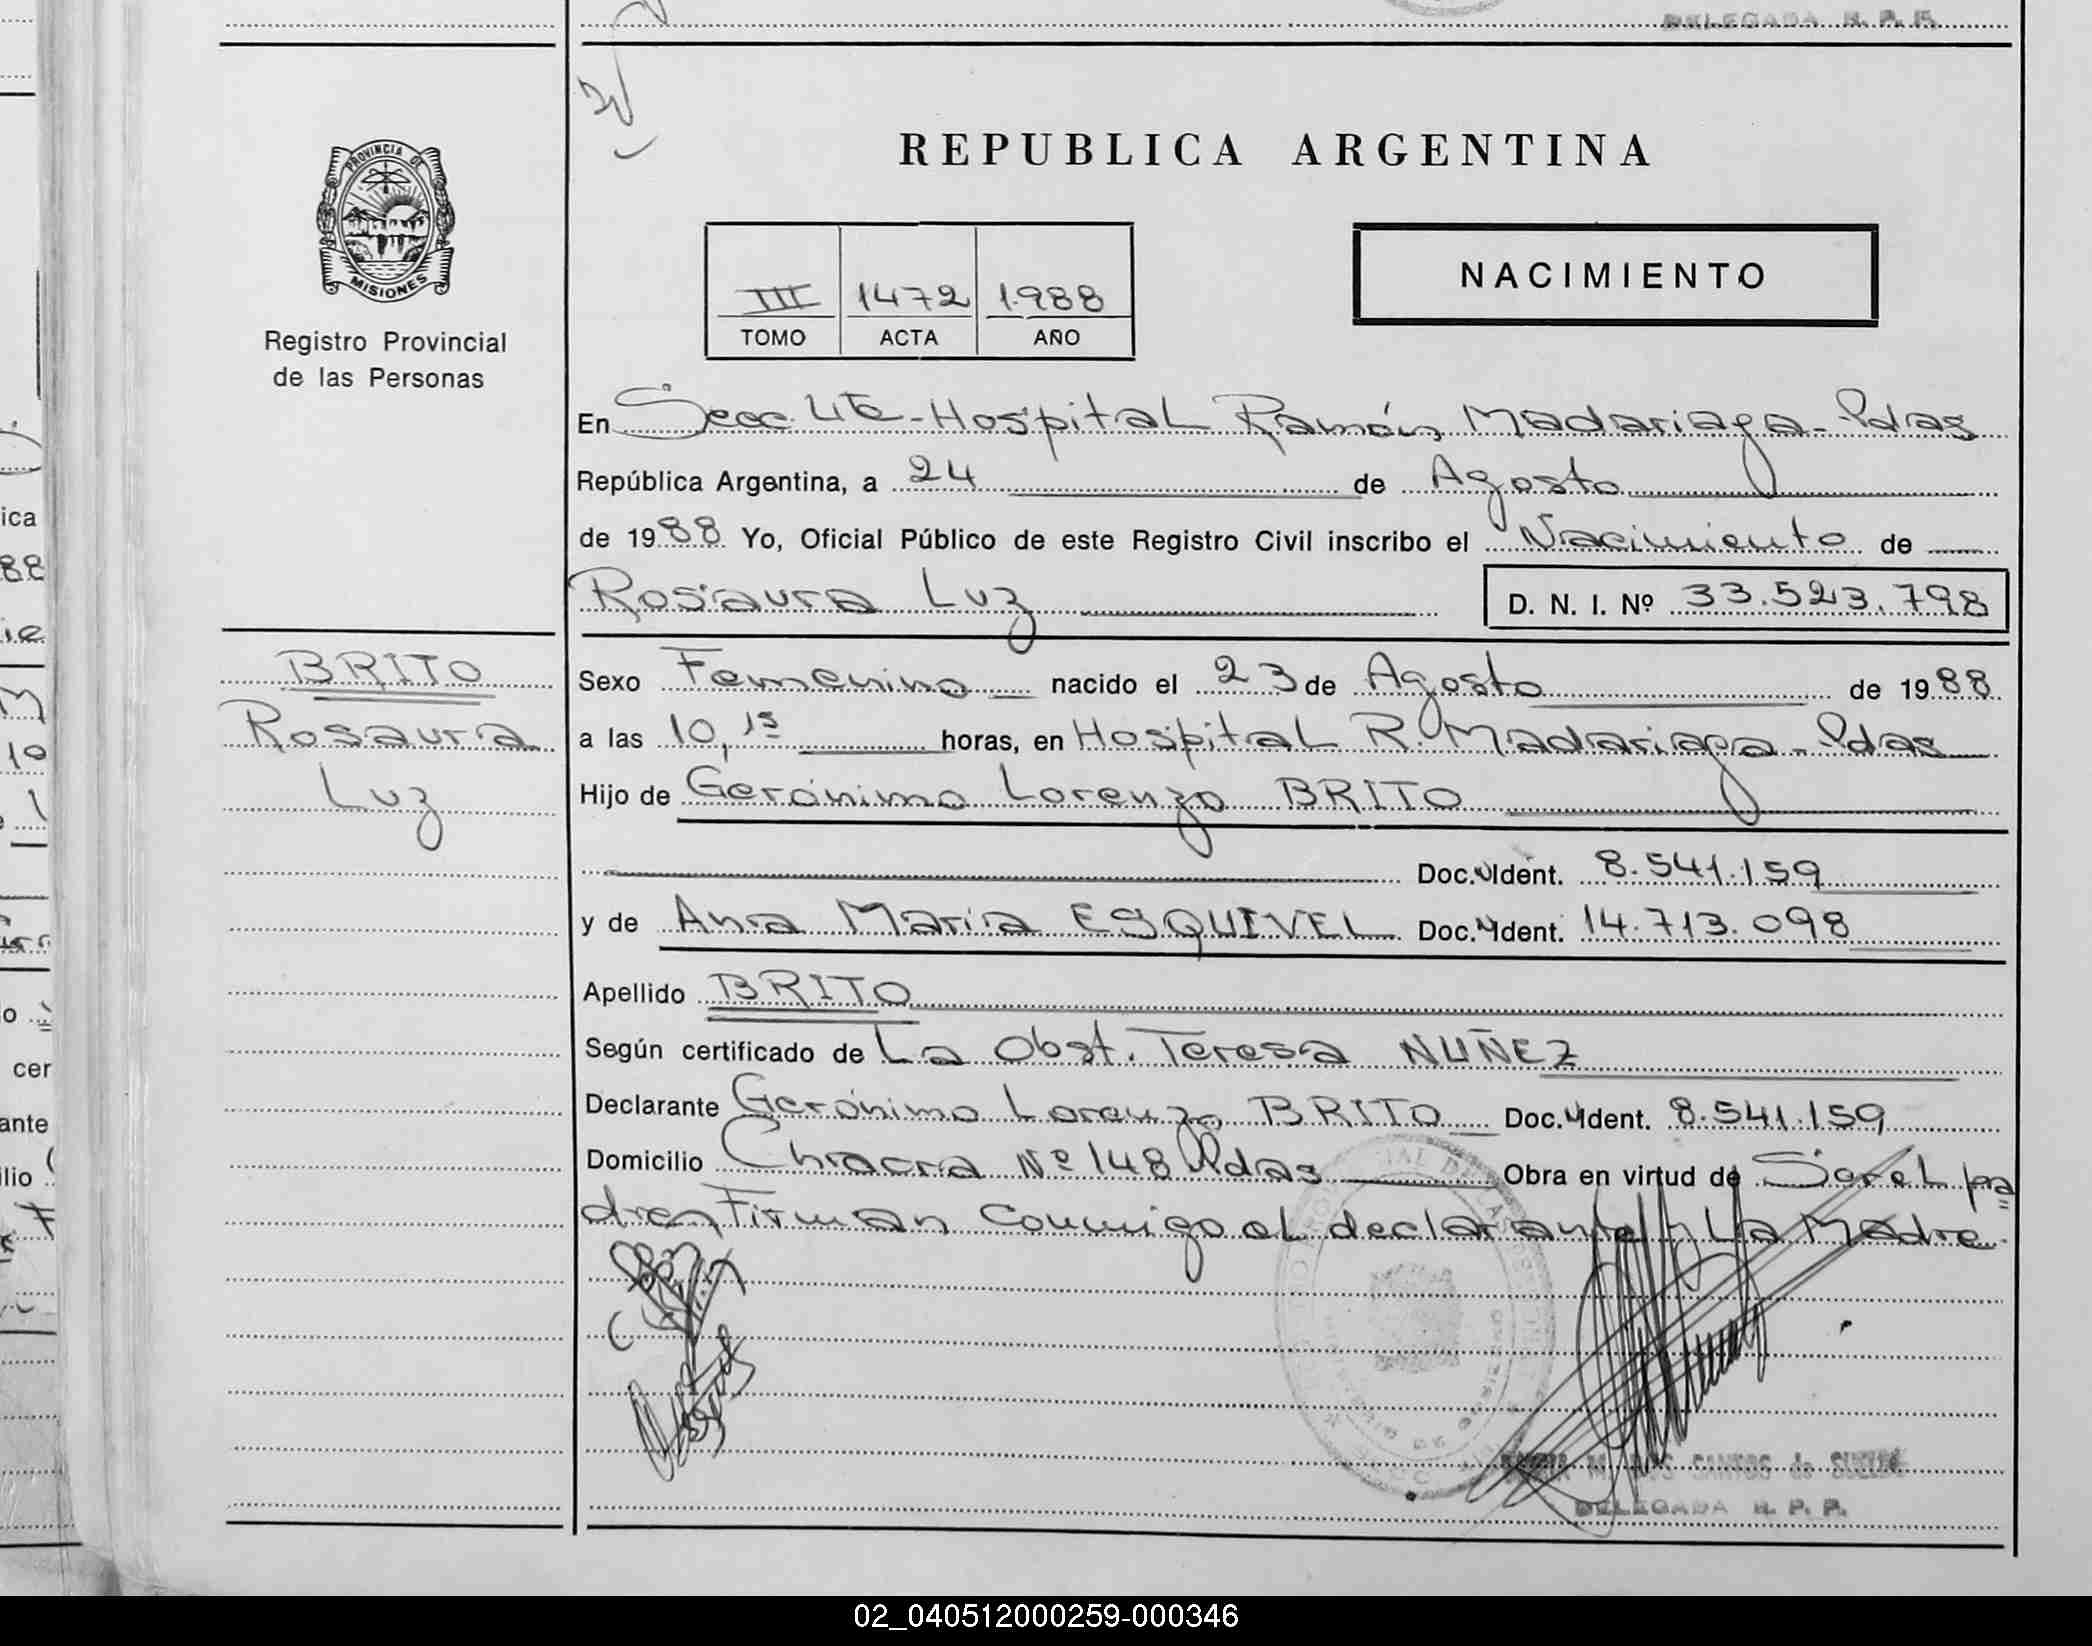 DELEGADA R. P. P.
REPUBLICA ARGENTINA
PROVINCIA DE
MISIONES
Registro Provincial
de las Personas
III 1472 1988
TOMO ACTA AÑO
NACIMIENTO
En Secc. 4ta - Hospital Ramón Madariaga - Pdas
República Argentina, a 24 de Agosto
de 1988 Yo, Oficial Público de este Registro Civil inscribo el Nacimiento de
Rosaura Luz
D. N. I. Nº 33.523.798
BRITO
Rosaura
Luz
Sexo Femenino nacido el 23 de Agosto de 1988
a las 10,15 horas, en Hospital R. Madariaga - Pdas
Hijo de Gerónimo Lorenzo BRITO
Doc. Ident. 8.541.159
y de Ana María ESQUIVEL Doc. Ident. 14.713.098
Apellido BRITO
Según certificado de La Obst. Teresa NUÑEZ
Declarante Gerónimo Lorenzo BRITO Doc. Ident. 8.541.159
Domicilio Chacra Nº 148 Pdas Obra en virtud de Ser el pa
dre, Firman conmigo el declarante y La Madre.
DELEGADA R. P. P.
02_040512000259-000346